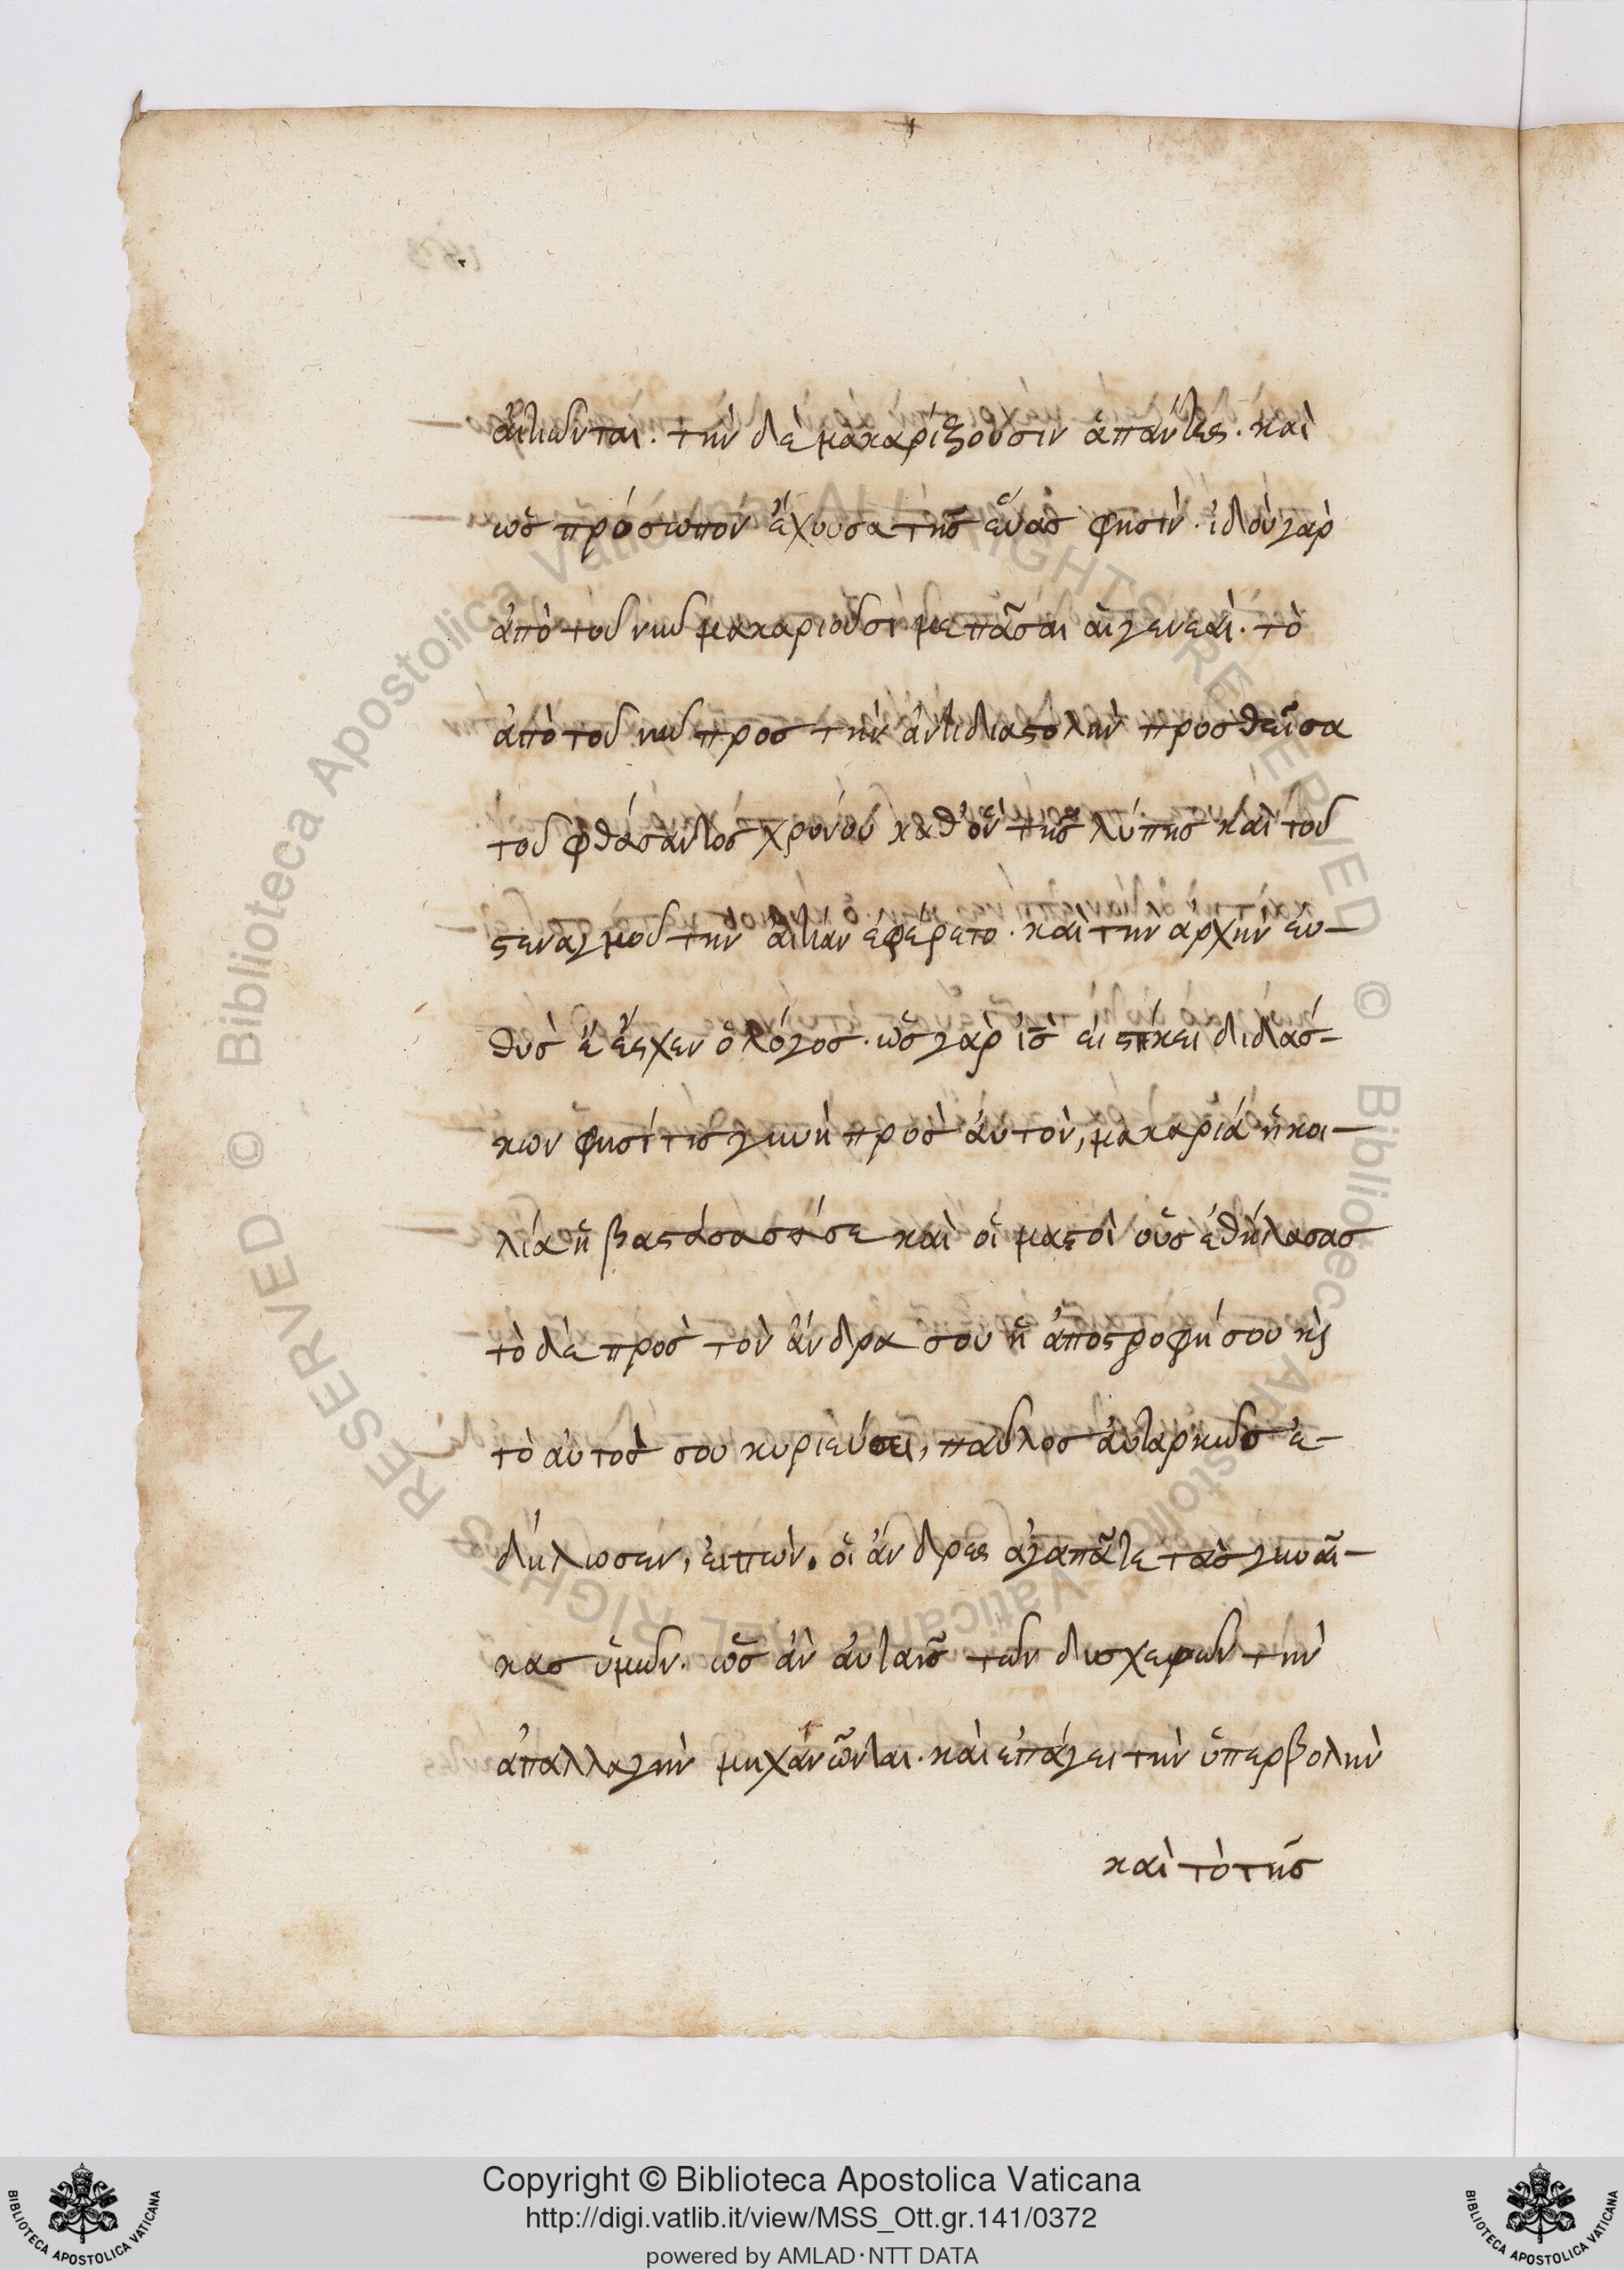 αἰτιῶνται. τὴν δὲ μακαρίζουσιν ἅπαντες. καὶ
ὡς πρόσωπον ἔχουσα τῆς εὔας φησίν. ἰδοὺ γὰρ
ἀπὸ τοῦ νῦν μακαριοῦσί με πᾶσαι αἱ γενεαί. τὸ
ἀπὸ τοῦ νῦν προς τὴν ἀντιδιαστολὴν προσθεῖσα
τοῦ φθάσαντος χρόνου καθ' ὃν τῆς λύπης καὶ τοῦ
στεναγμοῦ την αἰτίαν ἐφέρετο. καὶ την αρχὴν ευ-
θυς ἔσχεν ὁ λόγος. ὡς γὰρ ις εἰστήκει διδάσ-
κων φησί τις γυνὴ πρὸς αὐτὸν, μακαρία ἡ κοι-
λία ἡ βαστάσασά σε καὶ οἱ μαστοὶ οὓς ἐθήλασας
τὸ δὲ πρὸς τὸν ἄνδρα σου ἡ ἀποστροφή σου κὶ
τὸ αὐτός σου κυριεύσει, παῦλος αὐταρκῶς ἐ-
δήλωσεν, εἰπὼν. οἱ ἄνδρες ἀγαπᾶτε τὰς γυναῖ-
κας ὑμῶν. ὡς ἂν αὐταῖς τῶν δυσχερῶν τὴν
ἀπαλλαγὴν μηχανῶνται. καὶ ἐπάγει τὴν ὑπερβολὴν
καὶ τὸ τῆς
© Biblioteca Apostolica Vaticana ALL RIGHTS RESERVED
© Biblioteca Apostolica Vaticana ALL RIGHTS RESERVED
Copyright © Biblioteca Apostolica Vaticana
http://digi.vatlib.it/view/MSS_Ott.gr.141/0372
powered by AMLAD·NTT DATA
BIBLIOTECA APOSTOLICA VATICANA
BIBLIOTECA APOSTOLICA VATICANA